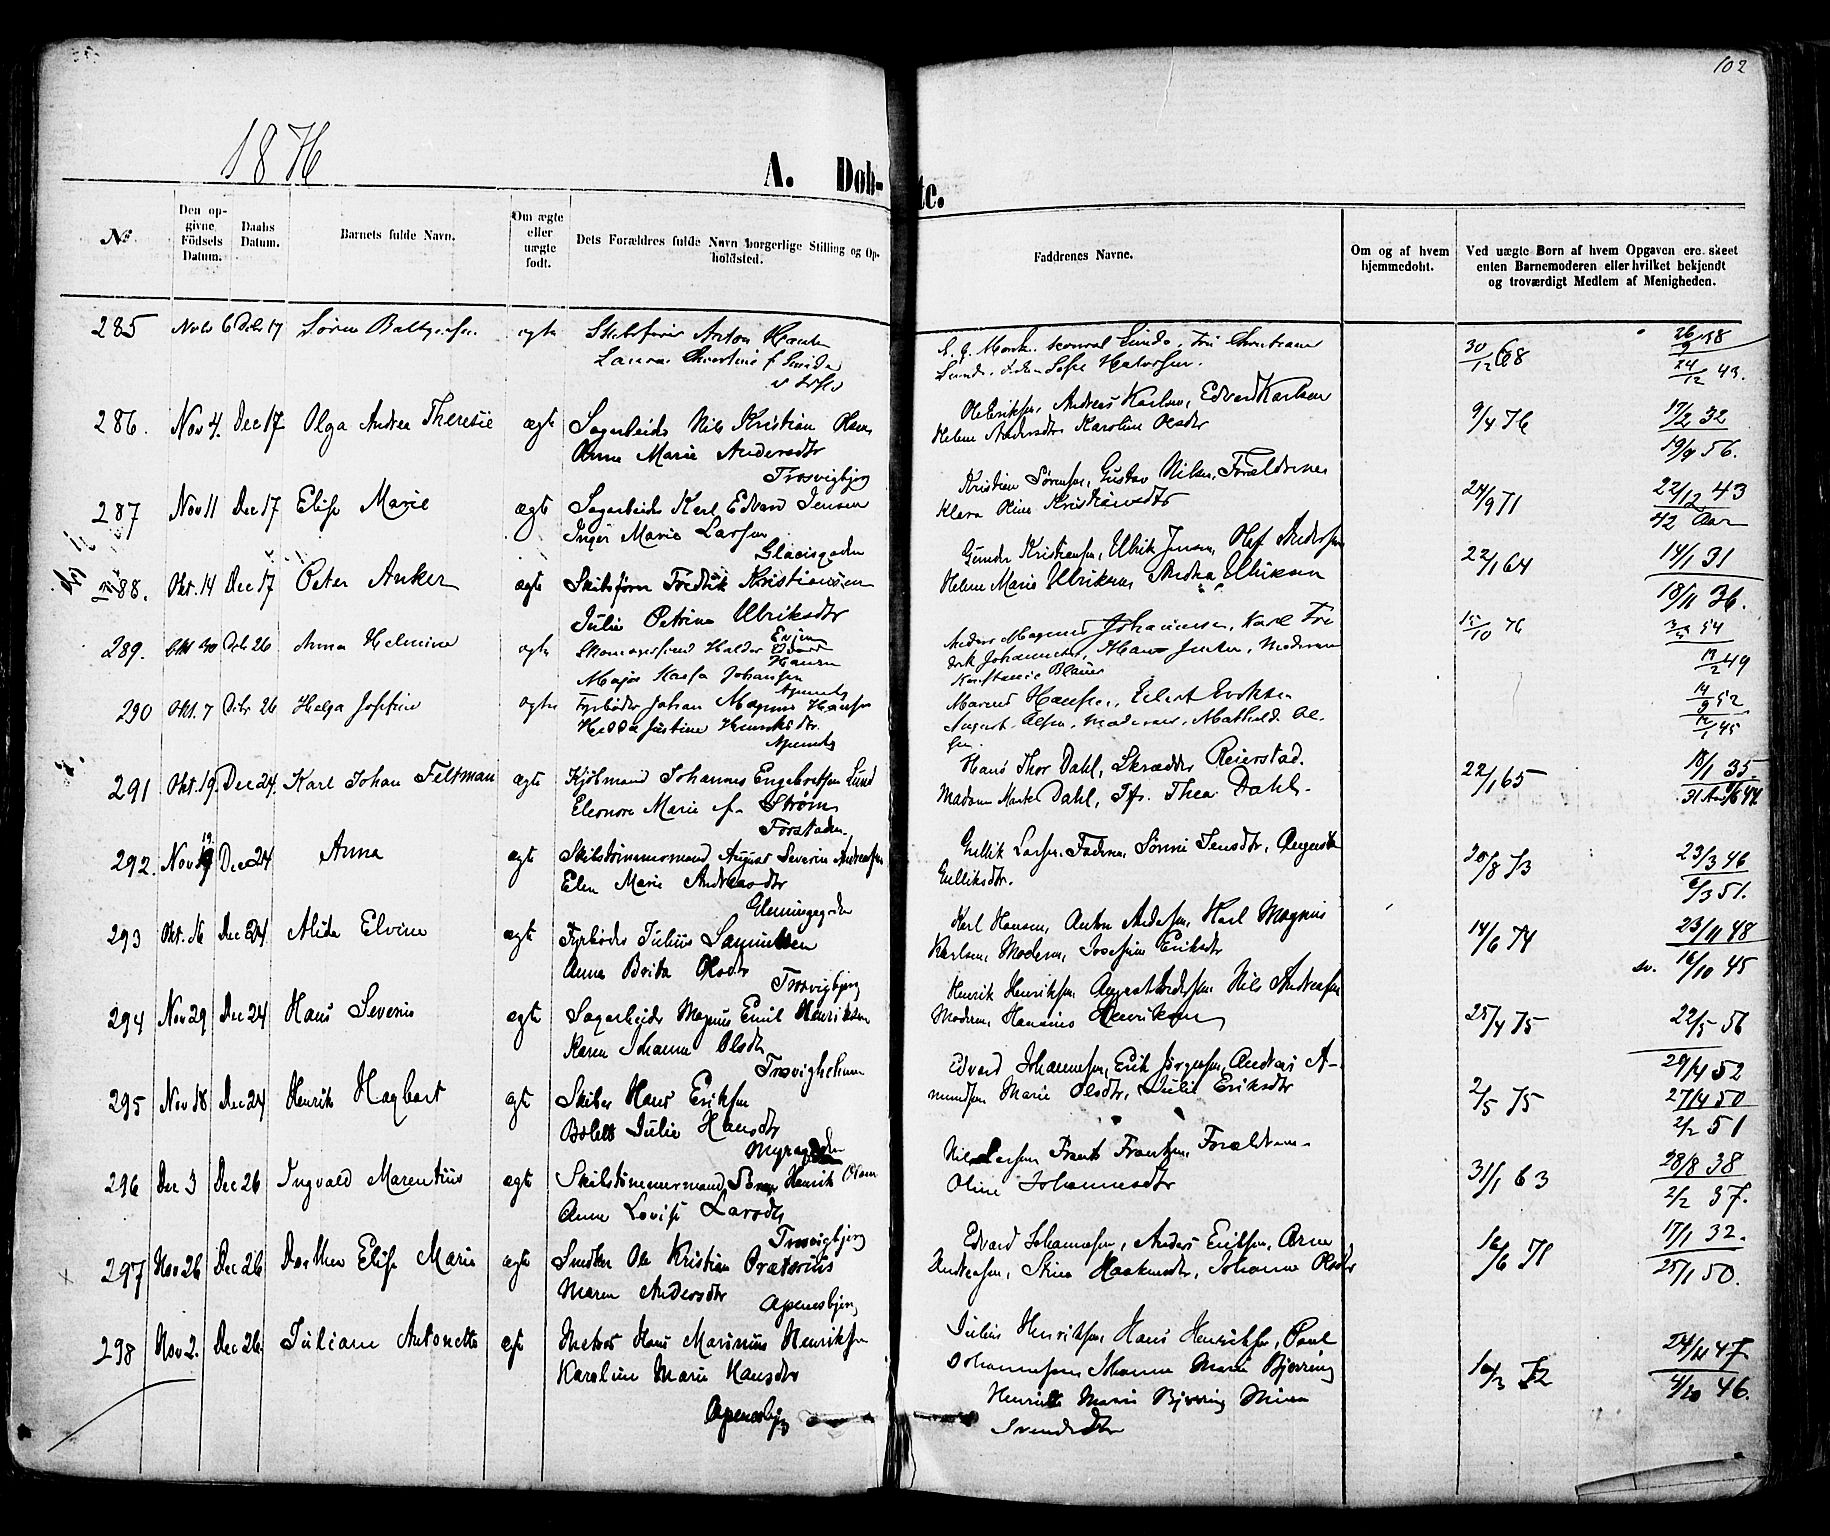 102
1876
A. Dob- te.
№
Den op-
givne
Födsels
Datum.
Daabs
Datum.
Barnets fulde Navn.
Om ægte
eller
uægte
født.
Dets Forældres fulde Navn borgerlige Stilling og Op-
holdsted.
Faddrenes Navne.
Om og af hvem
hjemmedøbt.
Ved uægte Børn af hvem Opgaven ere skeet
enten Barnemoderen eller hvilket bekjendt
og troværdigt Medlem af Menigheden.
285 Novb 6 Debr 17 Sören ægte Skibsfører Anton
Laura
30/12 68
24/12 43.
286. Nov 4. Dec 17 Olga Andrea Theresie ægte Sagarbeider Nils Kristian Olsen
Anne Marie Andersdtr
Trosvigbjerg
Ole Eriksen, Andreas Karlsen, Edvard Karlsen
Helene Andersdtr Karoline Olsdtr
9/4 76
17/2 32
19/9 56.
287 Nov 11 Dec 17 Elise Marie ægte Sagarbeider Karl Edvard Jensen
Inger Marie Larsen
Glacisgaden
Kristian Sørensen, Gustav Nilsen, Forældrene
Klara Oline Kristiansdtr
24/9 71
22/12 43
42 Aar
288. Okt. 14 Dec 17 Peter Anker ægte Skibsförer Fredrik Kristiansen
Julie Petrine Ulriksdtr
Gunder Kristiansen, Ulrik Jensen, Olaf Andersen
Helene Marie Ulriksen, Andrea Ulriksen
22/1 64
14/1 31
18/11 36.
289. Okt 30 Debr 26 Anna Helmine ægte Skomagersvend Halder
Hansen
Johansen
Anders Magnus Johannesen, Karl Fre
drik Johannesen, Hans Moderen
15/10 76
19/2 49
290 Okt. 7 Debr 26 Helga Josefine ægte Fyrbøder Johan Magnus Hansen
Hedda Justine Henriksdtr.
Marius Hansen, Edert
August Olsen, Moderen, Mathilde Ol-
sen.
14/9 52
291 Okt. 19. Dec 24. Karl Johan Feltman ægte Kjøbmand Johannes Engebretsen Lund
Eleonore Marie f. Strøm
Forstaden
Hans Thor Dahl, Skrædder Reierstad.
Madam Dahl, Jfr. Thea Dahl.
22/1 65
18/1 35.
292. Nov 19 Dec 24 Anna ægte Skibstømmermand August Severin Andreasen
Elen Marie Andreasdtr
Glemmegaden
Gullik Larsen, Faderen, Jensdtr, Augusta
Gulliksdtr.
20/8 73
23/3 46
6/3 51.
293 Okt. 16 Dec 24 Alida Elvine ægte Fyrbøder Julius Samuelsen
Anna Brita Olsdtr
Trosvigbjerg
Karl Hansen, Anton Andersen, Karl Magnus
Karlsen, Moderen, Josefine Eriksdtr
14/6 74
23/11 48
sv. 16/10 45
294 Nov 29 Dec 24 Hans Severin ægte Sagarbeider Magnus Emil Henriksen
Karen Johanne Olsdtr
Trosvigholmen
Henrik Henriksen, August Pedersen, Nils Andreasen
Moderen, Hansine Henriksen
25/4 75
22/5 56
29/4 52
295 Nov 18 Dec 24 Henrik Hagbart ægt Skiber Hans Eriksen
Bolette Julie Hansdtr
Myragaden
Edvard Johannesen, Erik Jørgensen, Andreas A-
mundsen Marie Olsdtr, Julie Eriksdtr
2/5 75
27/4 50
2/2 51
296 Dec 3 Dec 26 Ingvald Marentius ægte Skibstømmermand Sören Henrik Olsen
Anne Lovise Larsdtr
Trosvigbjerg
Nils Larsen Frants Frantsen, Forældrene
Oline Johannesdtr
31/1 63
28/8 38
2/2 37.
297 Nov 26 Dec 26 Dorthea Elise Marie ægte Snedker Ole Kristian Pratorius
Maren Andersdtr
Apenesbjerg
Edvard Johannesen, Anders Eriksen, Arne
Andreasen, Stine Haakensdtr, Johanne Olsdtr
16/6 71
17/1 32.
25/1 50.
298 Nov 2. Dec 26. Juliane Antonette ægt Matros Hans Marinius Henriksen
Karoline Marie Hansdtr
Apenesbjg
Julius Henriksen, Hans Henriksen, Paul
Johannesen Johanne Marie Bjerring
Henriette Marie Bjerring Mina
Svendsdtr
10/3 72
24/11 47
4/10 46.